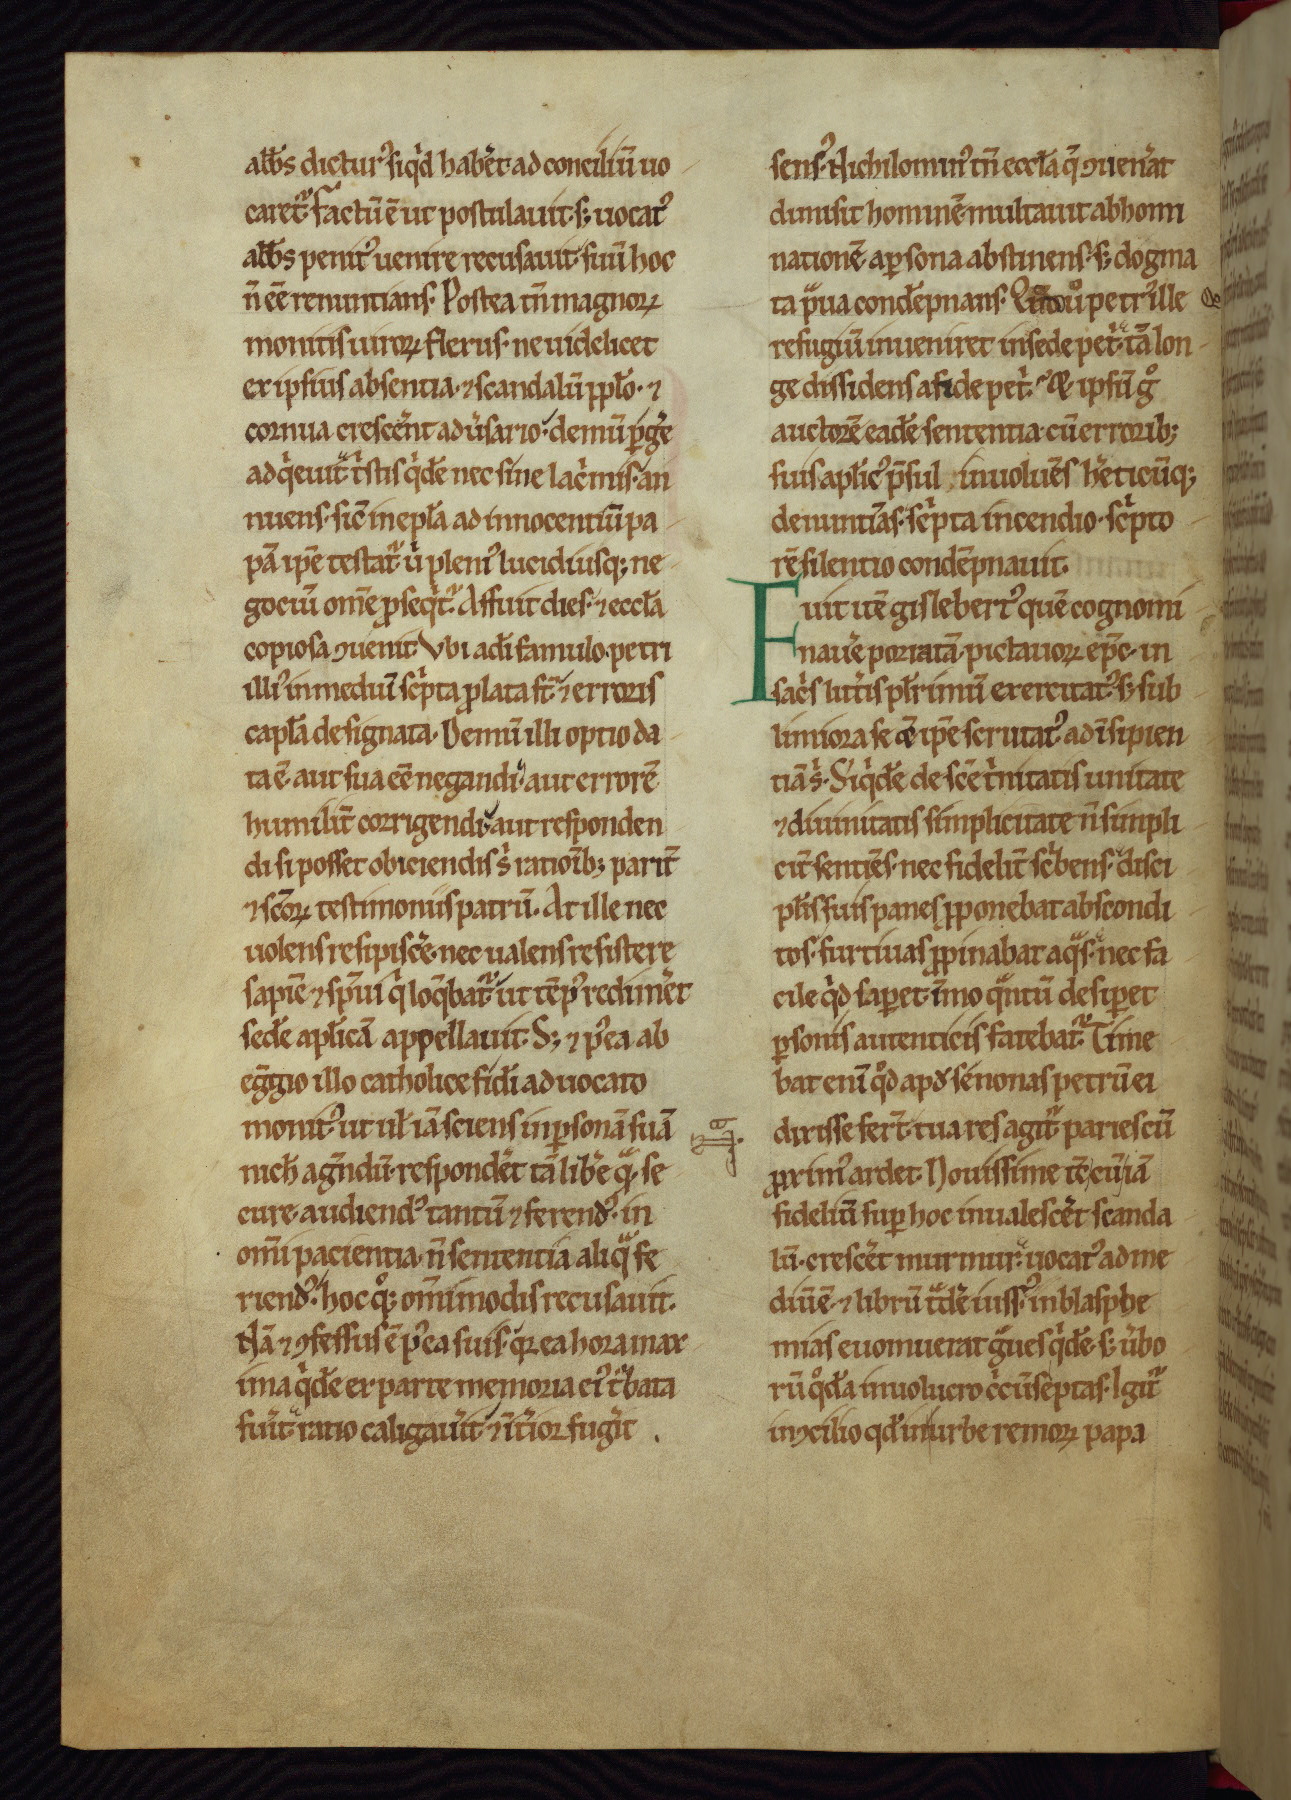 abb̄s dictur᷒ siq̇d hab̄et ad conciliū uo
caret᷑. factū ē ut postulauit. s; uocat᷒
abb̄s penit᷒ uenire recusauit. suū hoc
n̄ ēē renuntians. Postea tn̄ magnoꝝ
monitis uiroꝝ flexus. ne uidelicet
ex ipsius absentia. ⁊ scandalū pp̄lo. ⁊
cornua cresc̄ent adūsario. demū ꝑḡe
adq̇euit. tͥstis q̇dē nec sine lacͥmis. an
nuens. sic̄ in ep̄la ad innocentiū pa
pā ip̄e testat᷑. u̇ pleni᷒ lucidiusq; ne
gociū om̄e ꝓseqͥt᷑. Affuit dies. ⁊ eccl̄a
copiosa ꝯuenit. Vbi a dī famulo. petri
illi᷒ in mediū scͥpta ꝓlata st̄. ⁊ erroris
capl̄a designata. Demū illi optio da
ta ē. aut sua ēē negandi. aut errorē
humilit̄ corrigendi. aut responden
di si posset obiciendis s̄ ratioīb; parit̄
⁊ sc̄oꝝ testimoniis patrū. At ille nec
uolens resipisc̄e. nec ualens resistere
sapīe ⁊ sp̄ui q̇ loq̄bat᷑. ut tēp᷒ redim̄et
sedē apl̄icā appellauit. S; ⁊ p᷒ea ab
eḡgio illo catholice fidī aduocato
monit᷒. ut ul̄ iā sciens in ꝑsonā suā
nich̄ aḡndū. respond̄et tā lib̄e qͣ se
cure. audiend᷒ tantū ⁊ ferend᷒. in
om̄i pacientia. n̄ sententia aliqͣ fe
riend᷒. hoc qͦ; om̄imodis recusauit.
Nā ⁊ ꝯfessus ē p᷒ea suis. qꝛ ea hora max
ima q̇dē ex parte memoria ei᷒ tͥbata
fūit. ratio caligaūit. ⁊ īt̄ior fuḡit.
sens᷒. Nichilomin᷒ tn̄ eccl̄a q̄ ꝯuen̄at
dimisit hominē multauit abhomi
nationē. a ꝑsona abstinens. s; dogma
ta pͣua condēpnans. uͦ petr᷒ ille
refugiū inueniret in sede petͥ. tā lon
ge dissidens a fide petͥ. ipsū gͦ
auctorē eadē sententia cū errorib;
suis apl̄ic᷒ p̄sul inuoluēs h̄eticūq;
denuntiās. scͥpta incendio. scͥpto
rē silentio condēpnauit.
Fuit itē gislebert᷒ quē cognomi
nau̅e poriatā. pictauoꝝ ep̄c. in
sacͥs litt̄is pl᷑rimū exercitat᷒. s; sub
limiora se ēē ip̄e scrutat᷒. ad īsipien
tiā s̄. Siq̇dē de sc̄e tͥnitatis unitate
⁊ diuinitatis simplicitate n̄ simpli
cit̄ sentiēs. nec fidelit̄ scͥbens. disci
pl̄is suis panes ꝓponebat abscondi
tos. furtiuas ꝓpinabat aqͣs. nec fa
cile q̇d saꝑet. īmo qͣntū desiꝑet
ꝑsonis autenticis fatebat᷑. Time
bat eni qͦd apd̄ senonas petrū ei
dixisse fert̄. tua res agit᷑. paries cū
ꝓxim᷒ ardet. Nouissime tc̄ cū iā
fideliū suꝑ hoc inualesc̄et scanda
lū. cresc̄et murmur. uocat᷒ ad me
diū ē. ⁊ librū tͣdē iuss᷒. in blasphe
mias euomuerat gͣues q̇dē. s; u̅bo
rū qͦdā inuolucro cͥcūseptas. Igit᷑
in ꝯcilio qd̄ in urbe remoꝝ papa